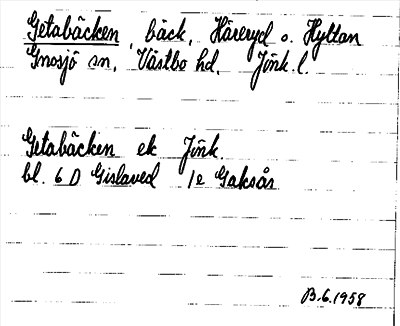 Getabäcken, bäck, Häreryd o. Hyltan
Gnosjö sn, Västbo hd, Jönk. l.
Getabäcken ek Jönk.
bl. 6 D Gislaved 1e Gaksås
B.G.1958